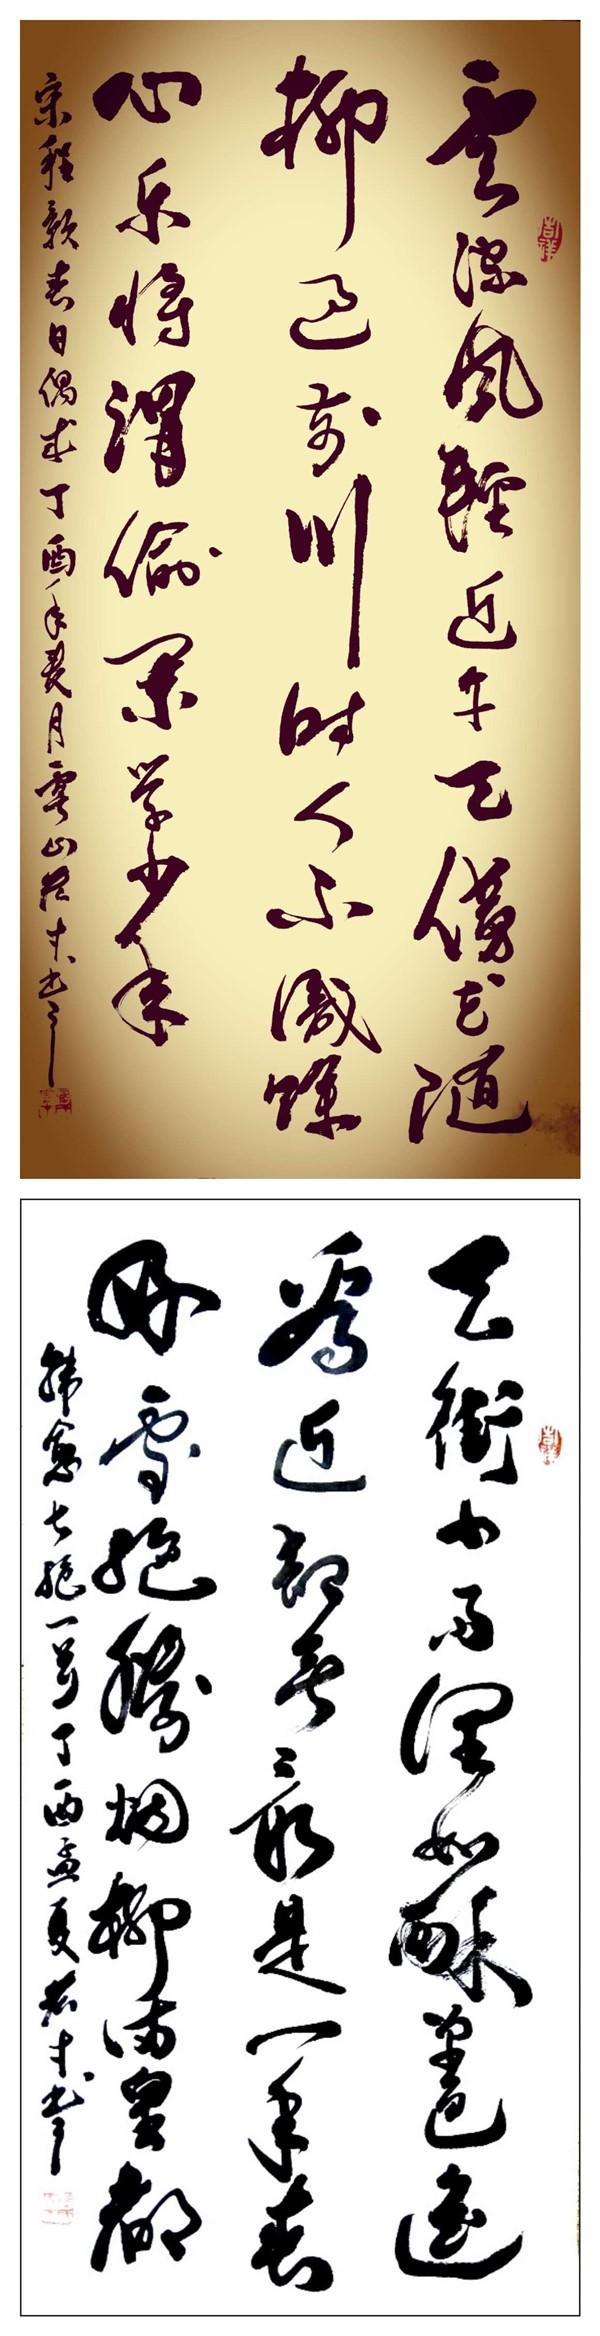 雲淡風輕近午天傍花随
柳過前川时人不識餘
心乐将謂偷閑学少年
宋程颢春日偶成丁酉年夏月雲山
天街小雨润如酥草色遥
看近却无最是一年春
好處绝勝烟柳满皇都
韩愈七绝一首丁酉孟夏